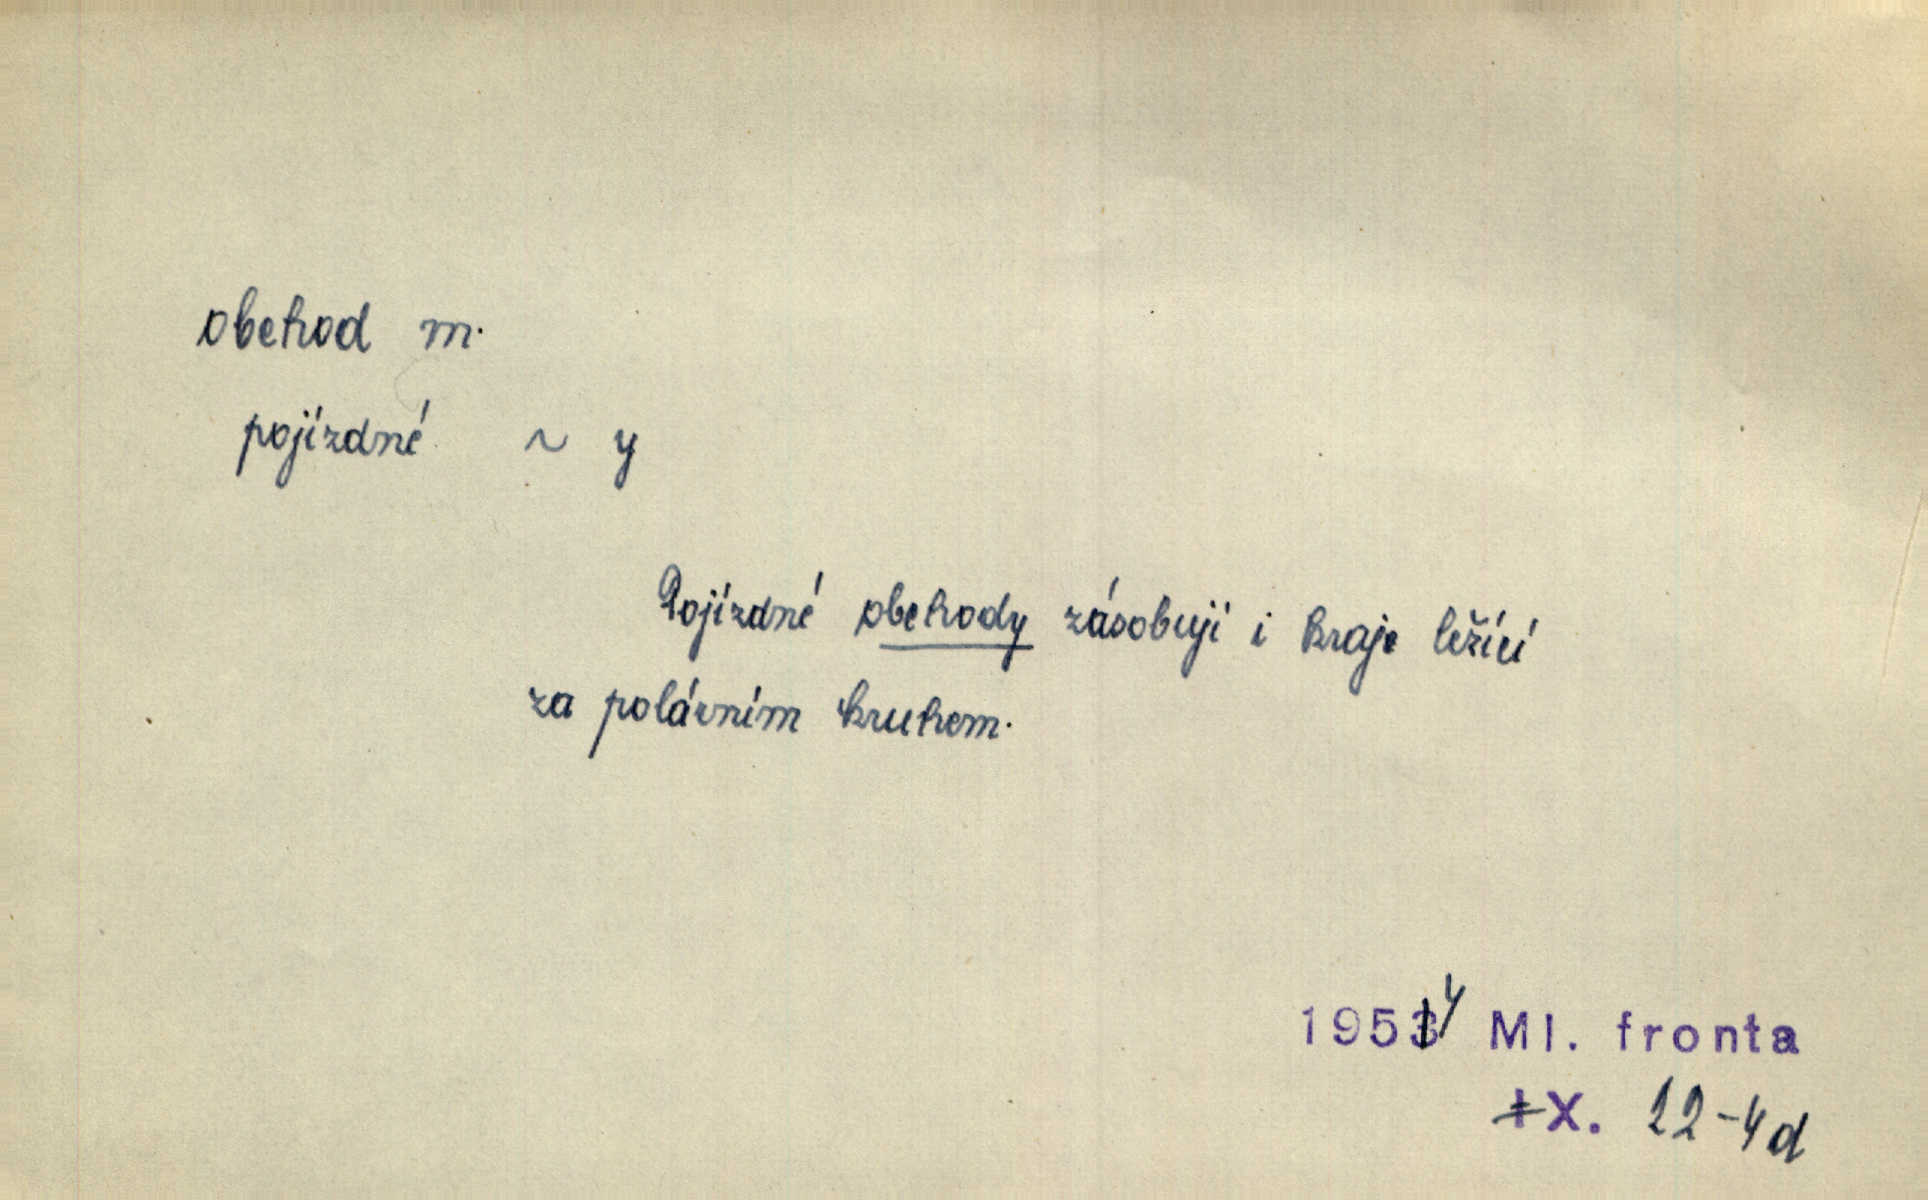 obchod m.
pojízdné ~ y
Pojízdné obchody zásobují i kraje ležící
za polárním kruhem.
1954 Ml. fronta
X. 22-4d